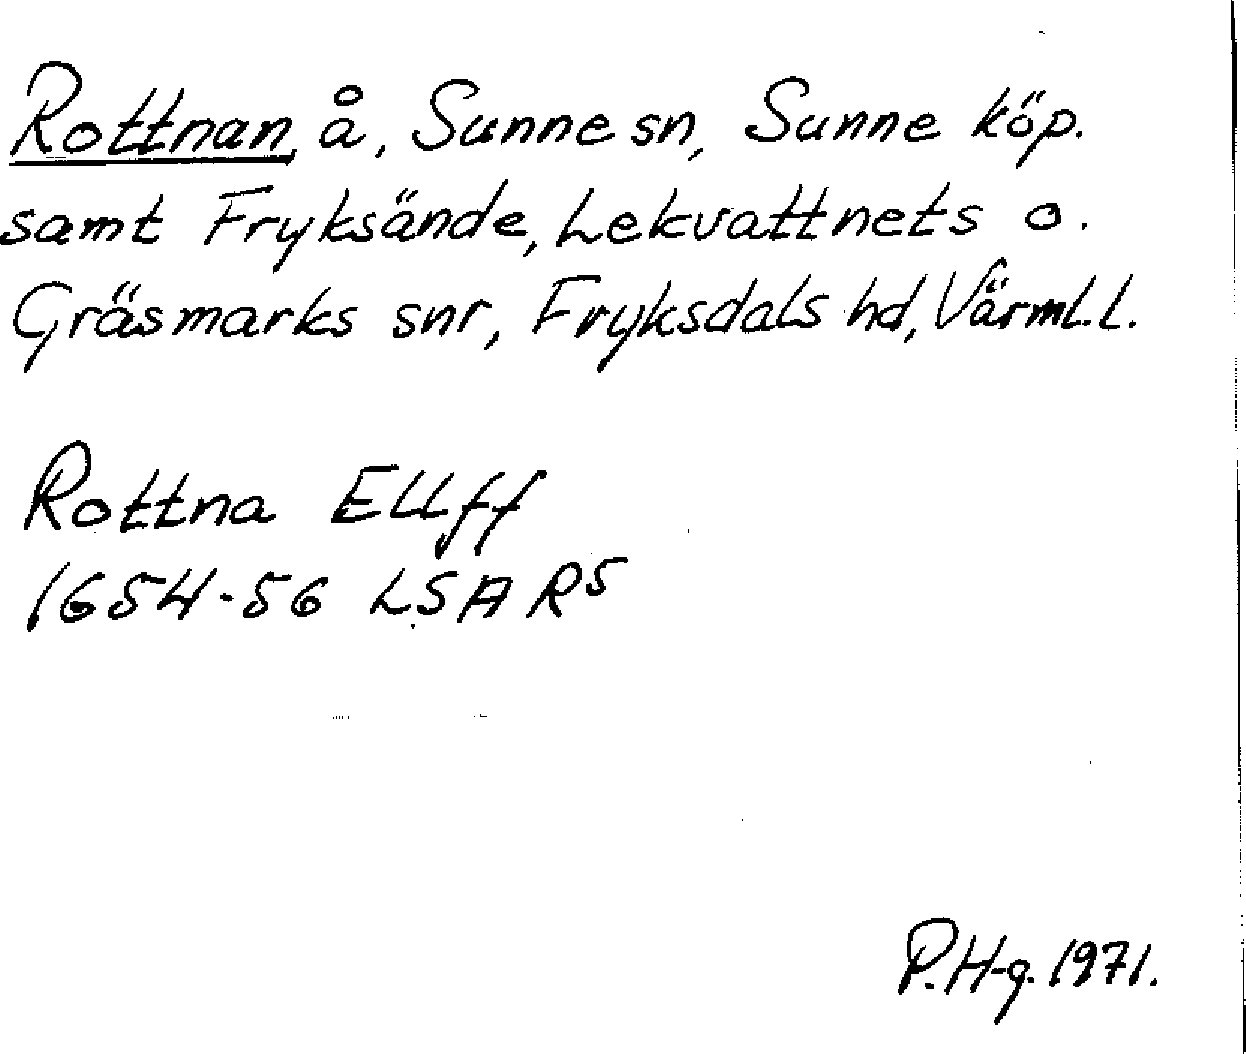 Rottnan, å, Sunne sn, Sunne köp.
samt Fryksände, Lekvattnets o.
Gräsmarks snr, Fryksdals hd, Värml. l.
Rottna Ellff
1654-56 LSA R5
P. H-g. 1971.